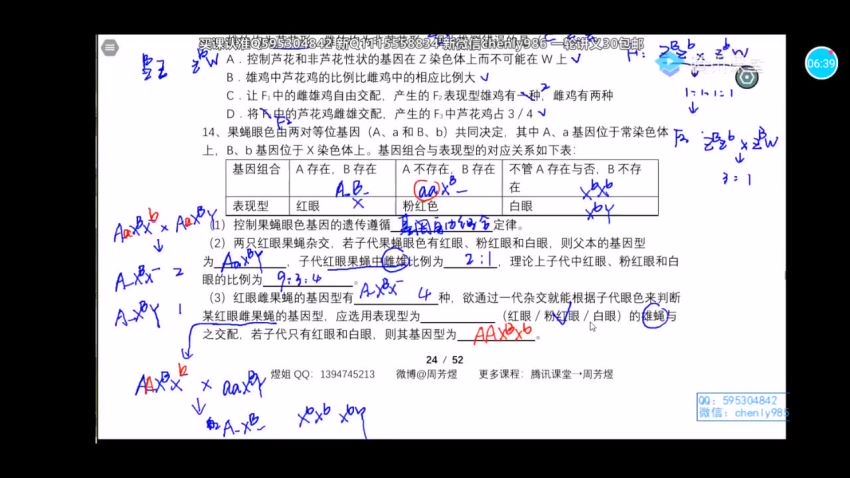 买课认准Q595304842 新Q1115558834 新微信chenly986 一轮讲义30包邮
06:39
A．控制芦花和非芦花性状的基因在 Z 染色体上而不可能在 W 上 √
B．雄鸡中芦花鸡的比例比雌鸡中的相应比例大 √
C．让 F₁ 中的雌雄鸡自由交配，产生的 F₂ 表现型雄鸡有一种，雌鸡有两种
D．将 中的芦花鸡雌雄交配，产生的 F₃ 中芦花鸡占 3 / 4 √
F₂
1:1:1:1
3:1
14、果蝇眼色由两对等位基因（A、a 和 B、b）共同决定，其中 A、a 基因位于常染色体
上，B、b 基因位于 X 染色体上。基因组合与表现型的对应关系如下表：
基因组合 A 存在，B 存在 A 不存在，B 存在 不管 A 存在与否，B 不存在
表现型 红眼 粉红色 白眼
（1）控制果蝇眼色基因的遗传遵循 基因自由组合 定律。
（2）两只红眼果蝇杂交，若子代果蝇眼色有红眼、粉红眼和白眼，则父本的基因型
为 AaXᴮY ，子代红眼果蝇中雌雄比例为 2:1 ，理论上子代中红眼、粉红眼和白
眼的比例为 9:3:4 。
（3）红眼雌果蝇的基因型有 A_XᴮX⁻ 4 种，欲通过一代杂交就能根据子代眼色来判断
某红眼雌果蝇的基因型，应选用表现型为 （红眼 / 粉红眼 / 白眼）的雄蝇与
之交配，若子代只有红眼和白眼，则其基因型为 AAXᴮXᵇ 。
AaXᴮXᵇ × AaXᴮY
A_XᴮX⁻ 2
A_XᴮY 1
24 / 52
煜姐 QQ：1394745213 微博@周芳煜 更多课程：腾讯课堂→周芳煜
AAXᴮXᵇ × aaXᴮY
A_Xᴮ_ XᵇXᵇ XᵇY
QQ: 595304842
微信: chenly985